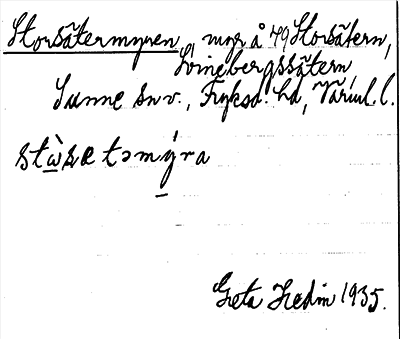 Storsätermyren, myr å 49 Storsätern,
Svinebergssätern,
Sunne snv., Fryksd. hd, Värml. l.
stẁsætəmýra
Greta Hedin 1935.